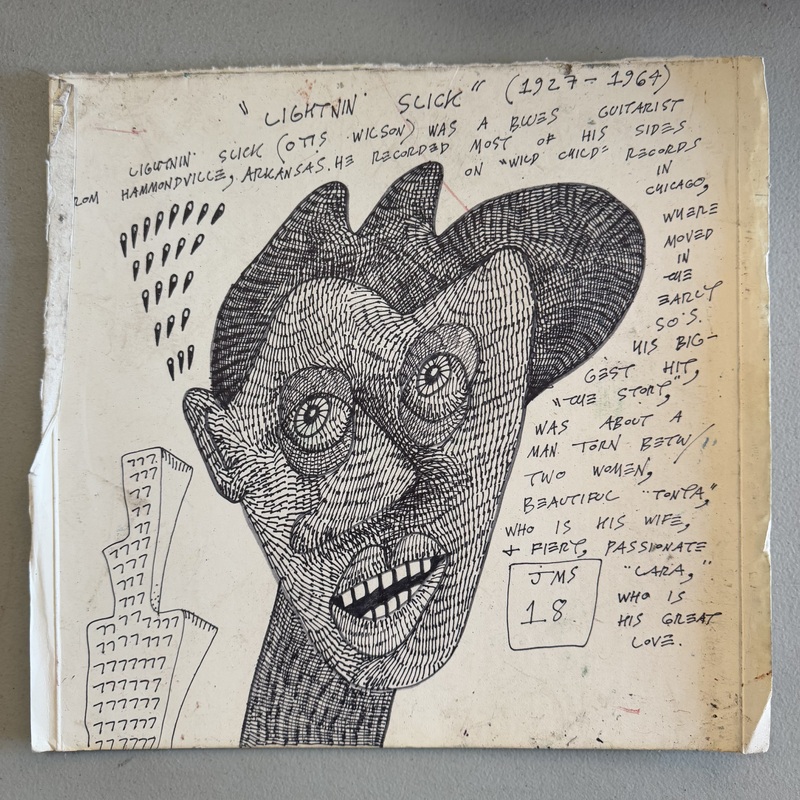 "LIGHTNIN' SLICK" (1927-1964)
LIGHTNIN' SLICK (OTIS WILSON) WAS A BLUES GUITARIST
ROM HAMMONDVILLE, ARKANSAS. HE RECORDED MOST OF HIS SIDES
ON "WILD CHILD" RECORDS
IN
CHICAGO,
WHERE
MOVED
IN
THE
EARLY
50'S.
HIS BIG-
GEST HIT,
"THE STORY,"
WAS ABOUT A
MAN TORN BETW/
TWO WOMEN,
BEAUTIFUL "TONYA,"
WHO IS HIS WIFE,
+ FIERY, PASSIONATE
"CARA,"
WHO IS
HIS GREAT
LOVE.
JMS
18